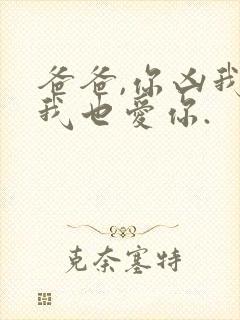 爸爸,你凶我
我也愛你.
克奈塞特